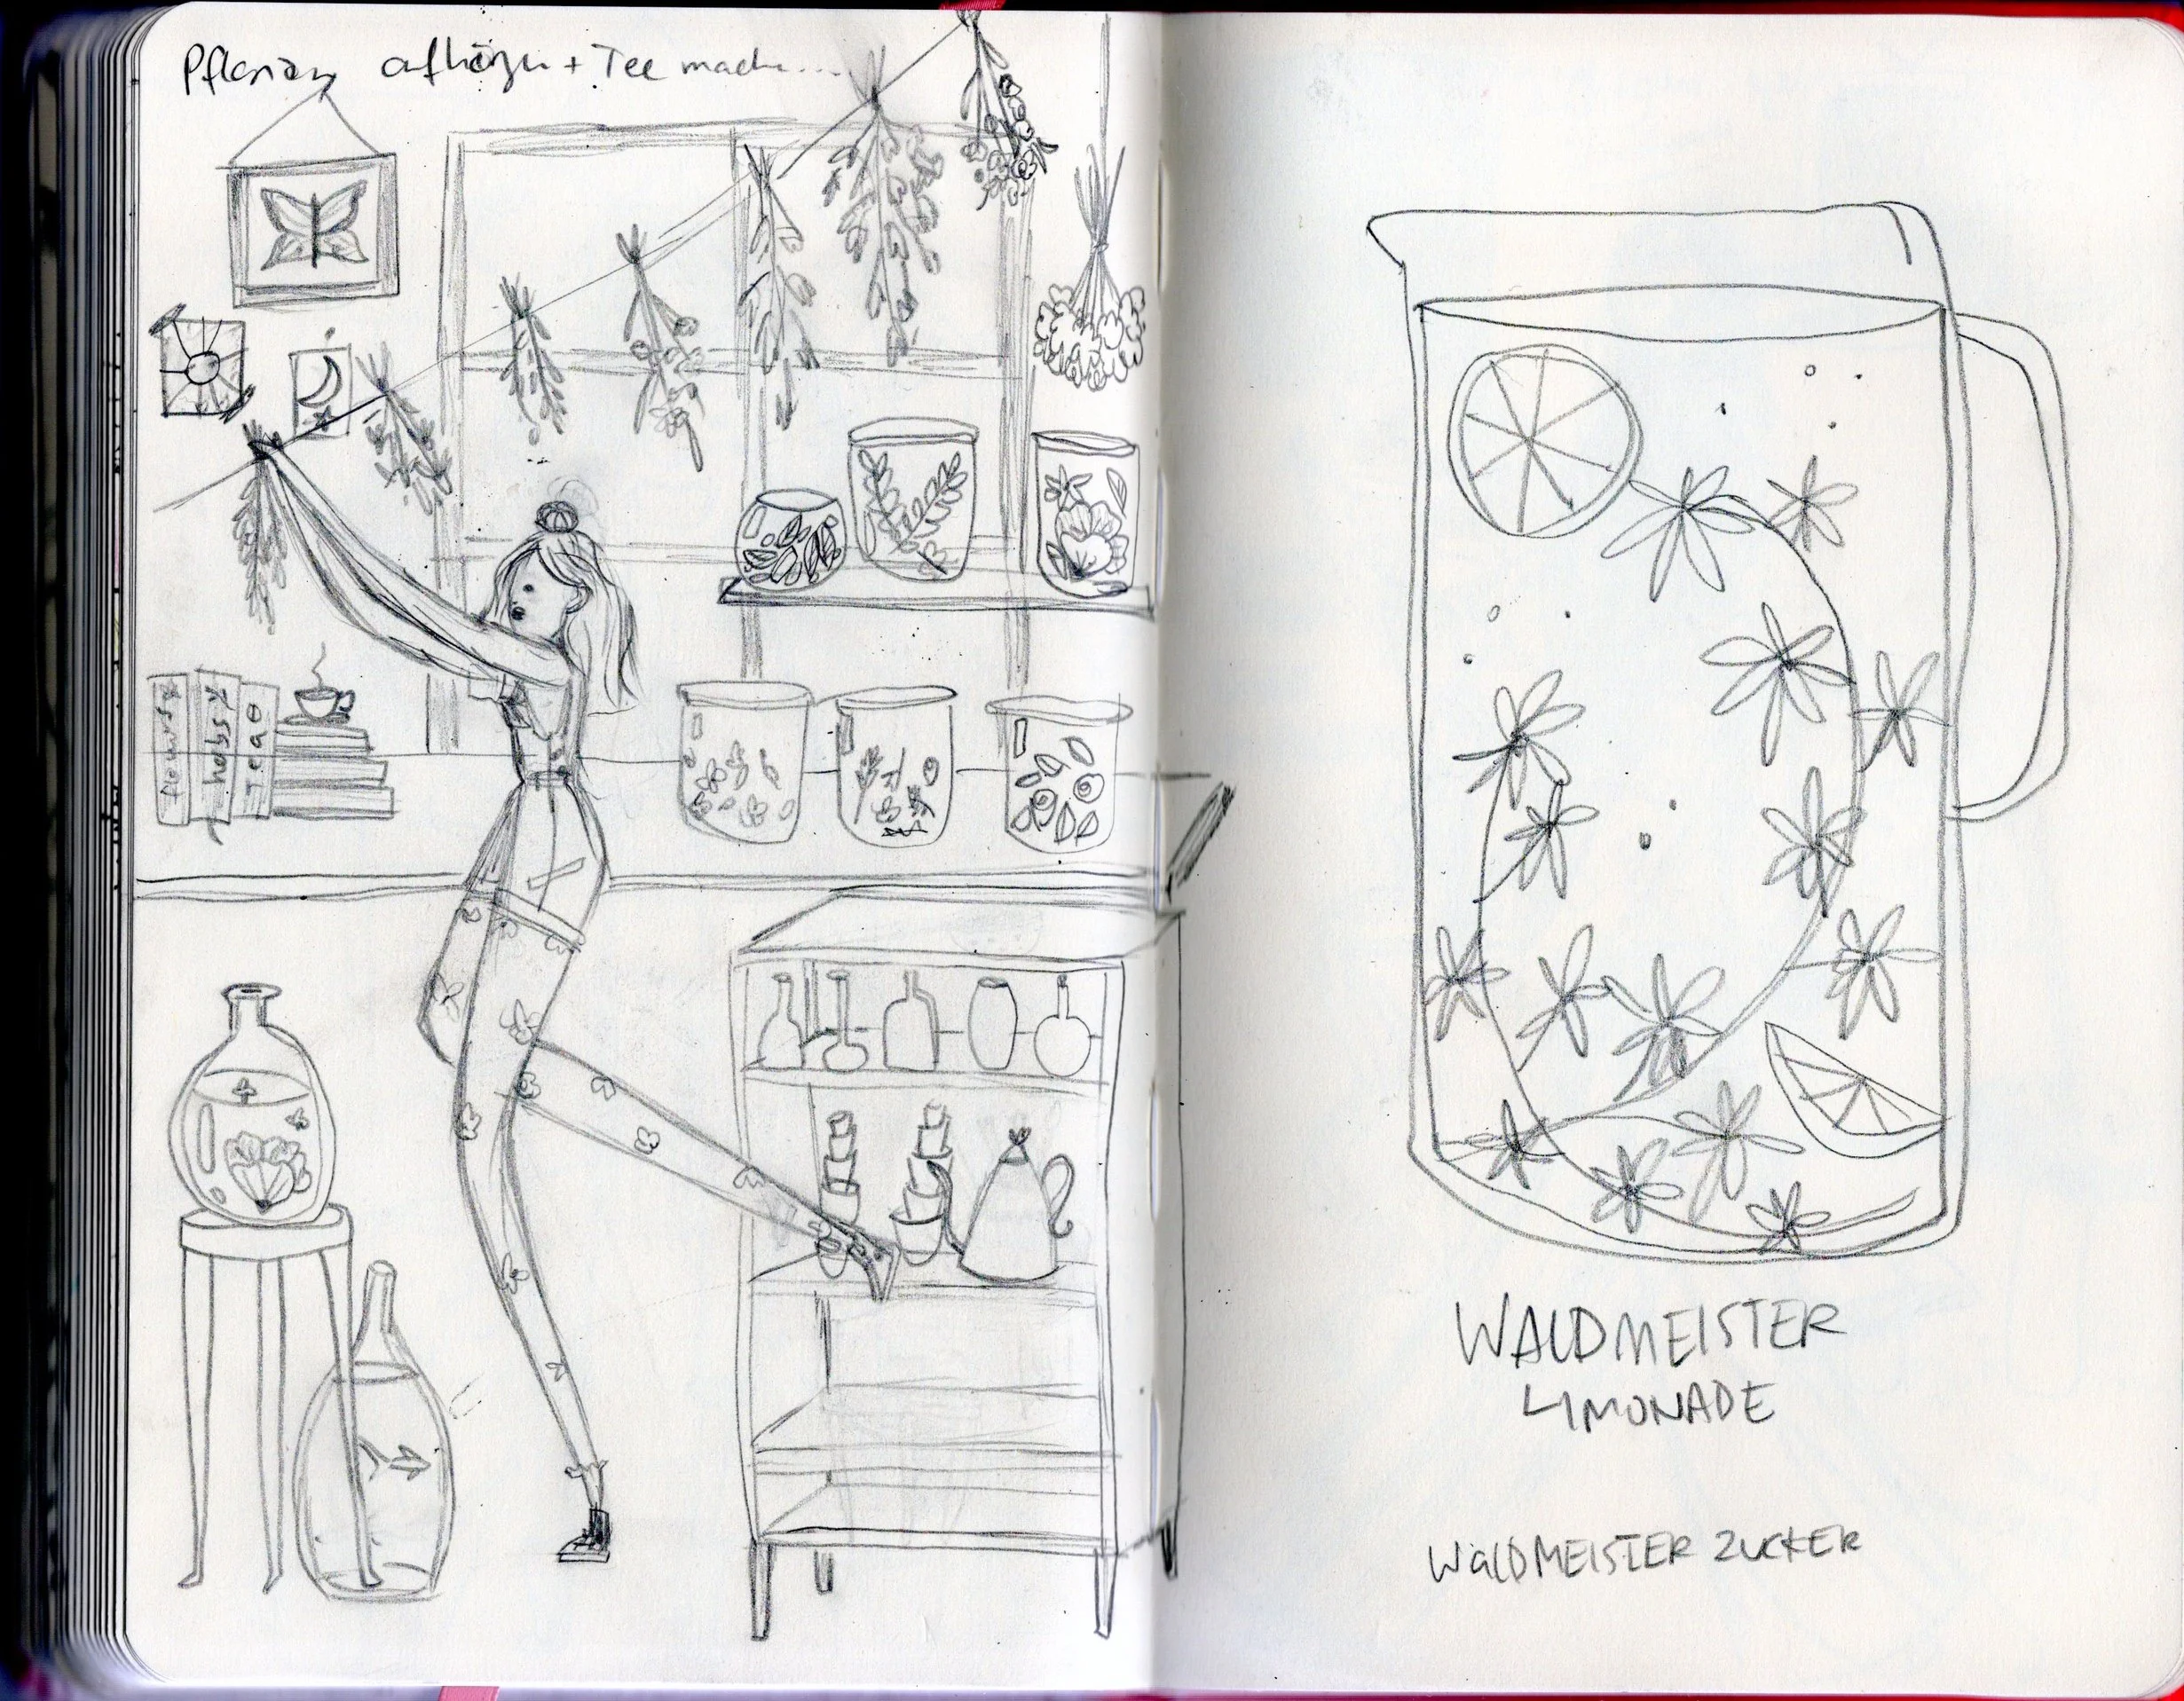 Pflanzen aufhängen + Tee machen...
flowers
herbs
Tea
WALDMEISTER
LIMONADE
WALDMEISTER ZUCKER